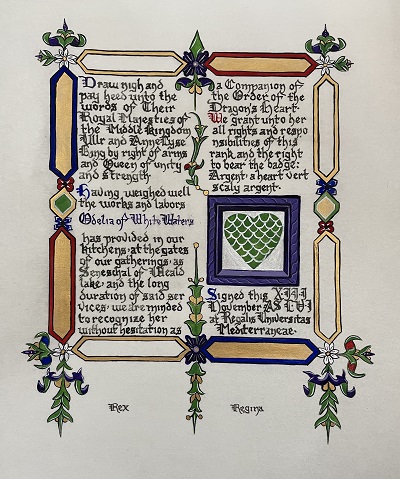 Draw nigh and
pay heed unto the
words of Their
Royal Majesties of
the Middle Kingdom
Ullr and AnneLyse
King by right of arms
and Queen of unity
and strength.
Having weighed well
the works and labors
Odelia of White Waters
has provided in our
kitchens, at the gates
of our gatherings, as
Seneschal of Weald
lake, and the long
duration of said ser
vices, we are minded
to recognize her
without hesitation as
a Companion of
the Order of the
Dragon's Heart.
We grant unto her
all rights and respo
nsibilities of this
rank and the right
to bear the badge:
Argent, a heart vert
scaly argent.
Signed this XIII
November AS LVI
at Regalis Universitas
Mediterraneae.
Rex
Regina